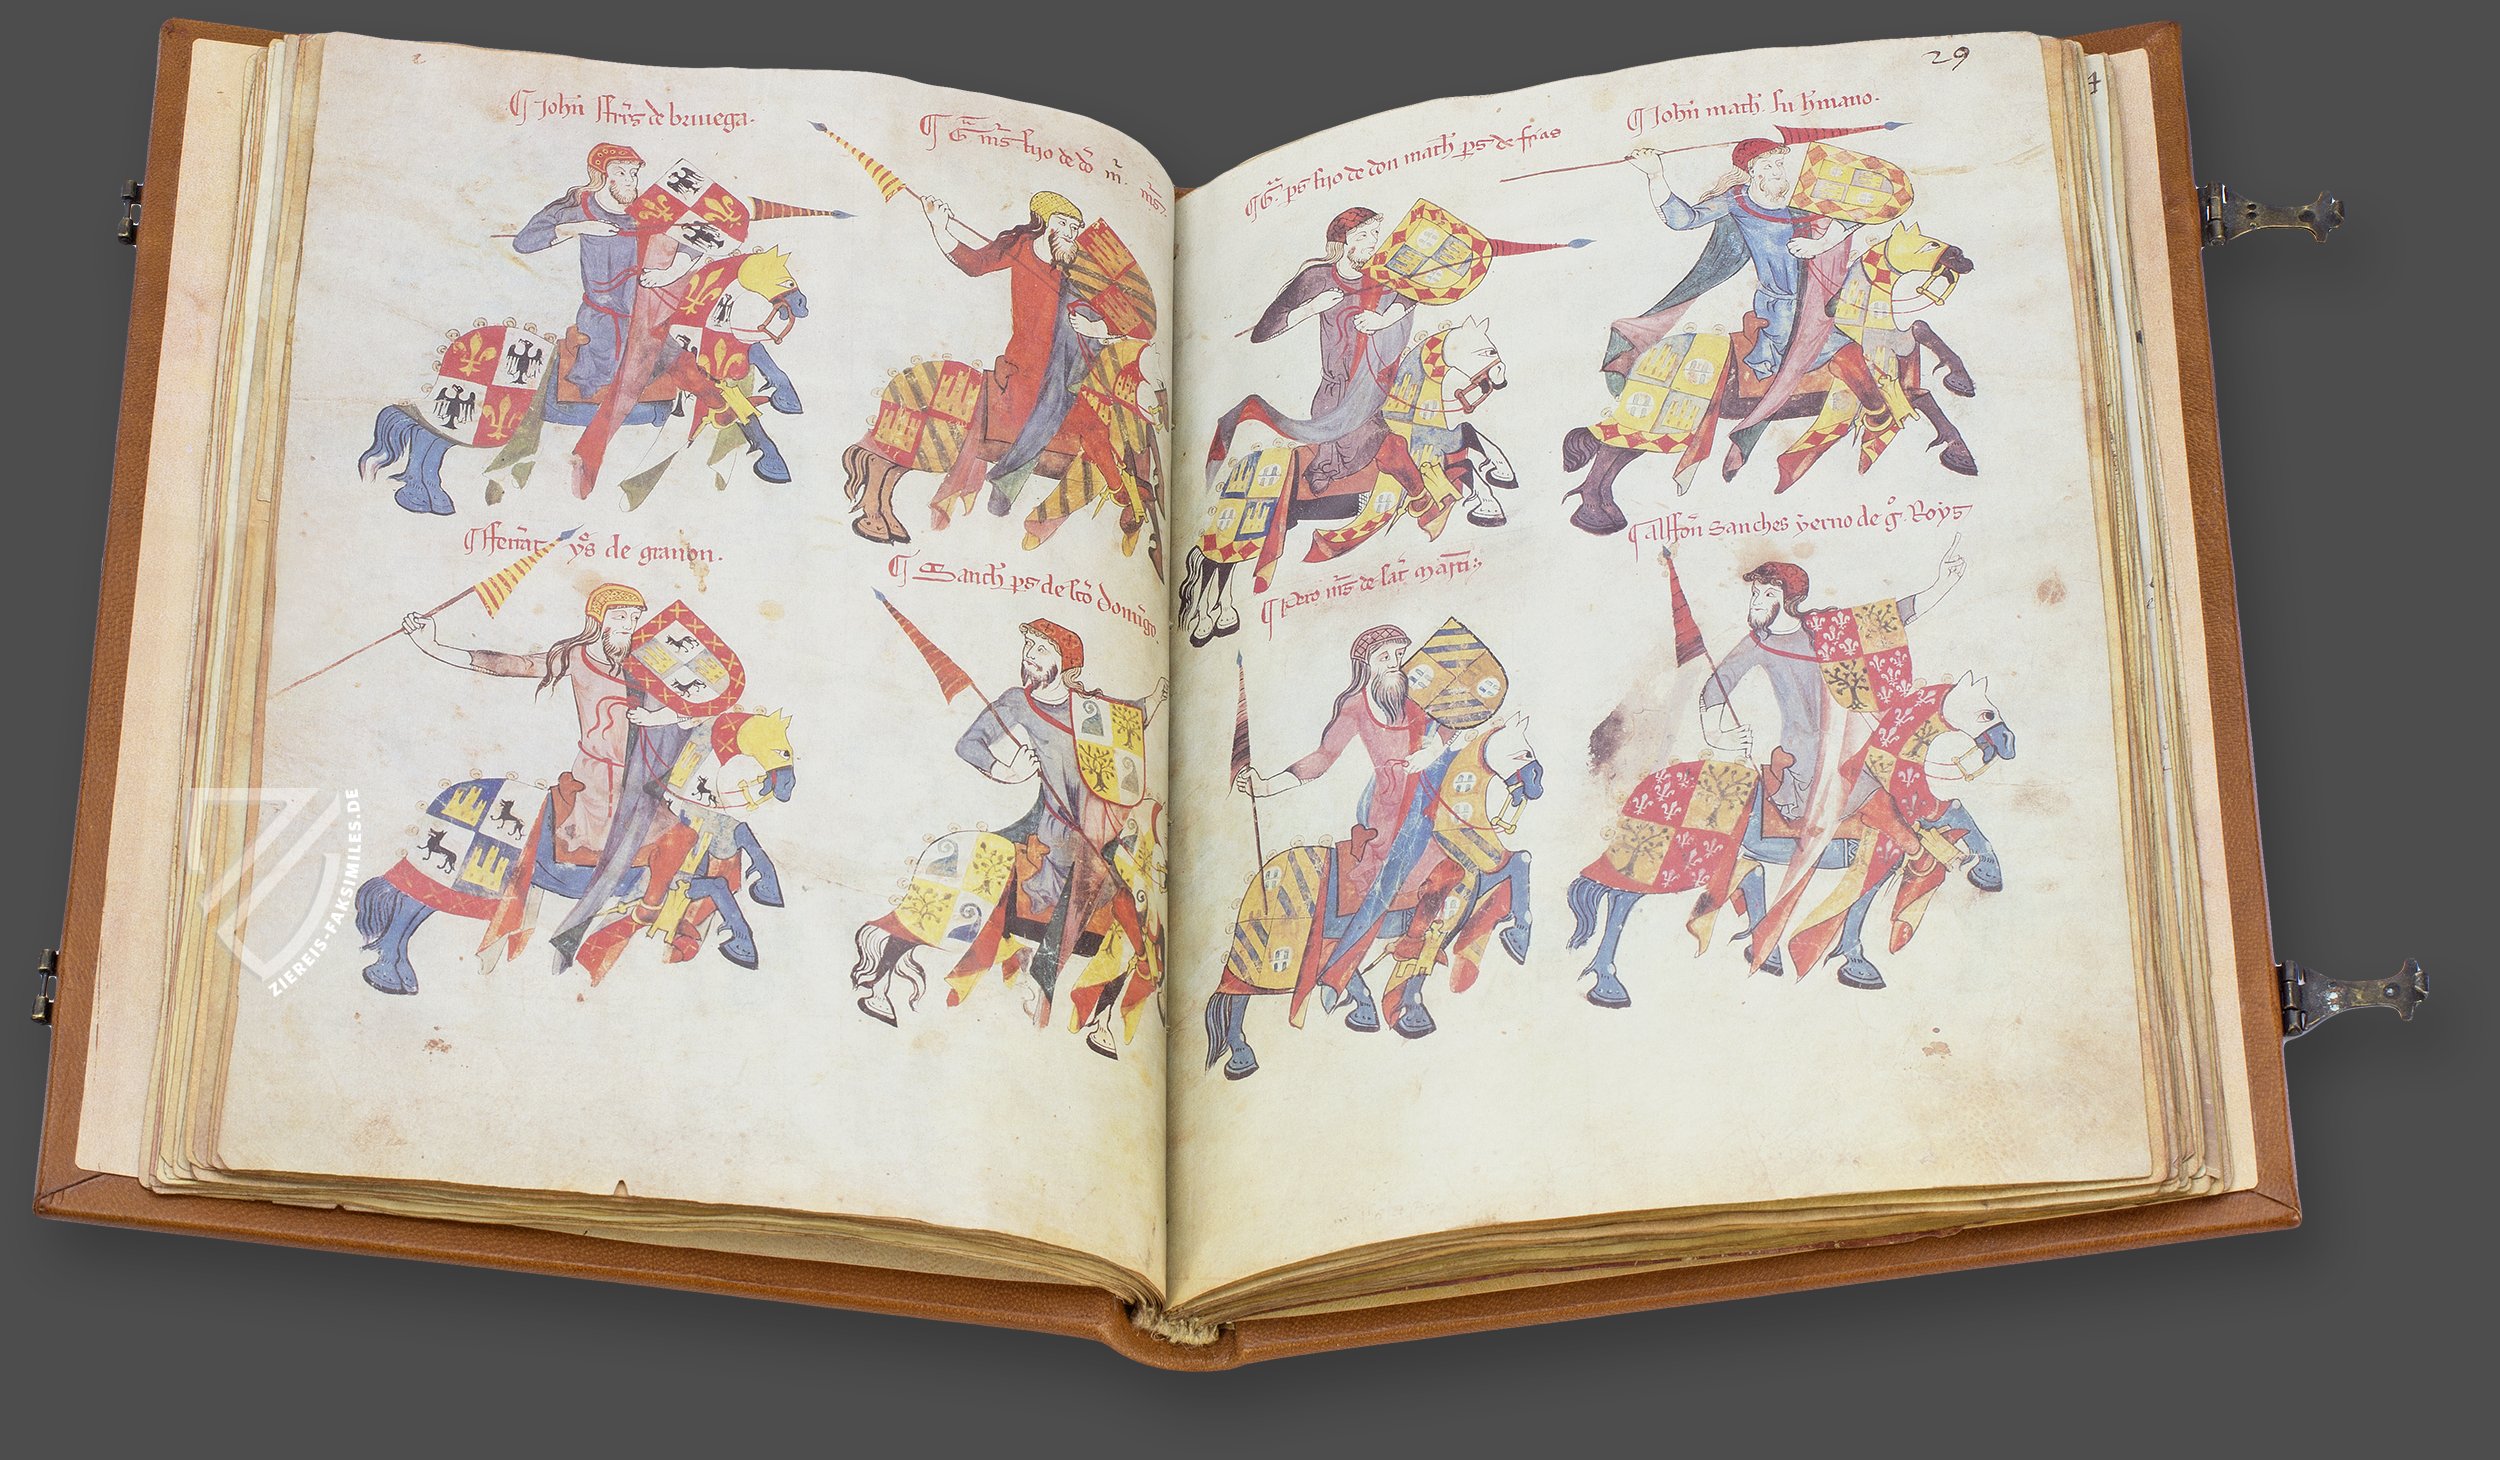 ¶ Johñ ffr̃s de briuega.
¶ G̃. mr̃s fijo de dõ m̃. mr̃s.
¶ fferrãt yº̃s de granon.
¶ Sanch̃ p̱s de st̃o domĩgo
29
¶ G̃. p̱s fijo de don math̃ p̱s de frias
¶ Johñ math̃. su h̃mano.
¶ Pero mr̃s de sãt martĩ
¶ alffoñ sanches yerno de gº. Roys
4
ZIEREIS-FAKSIMILES.DE